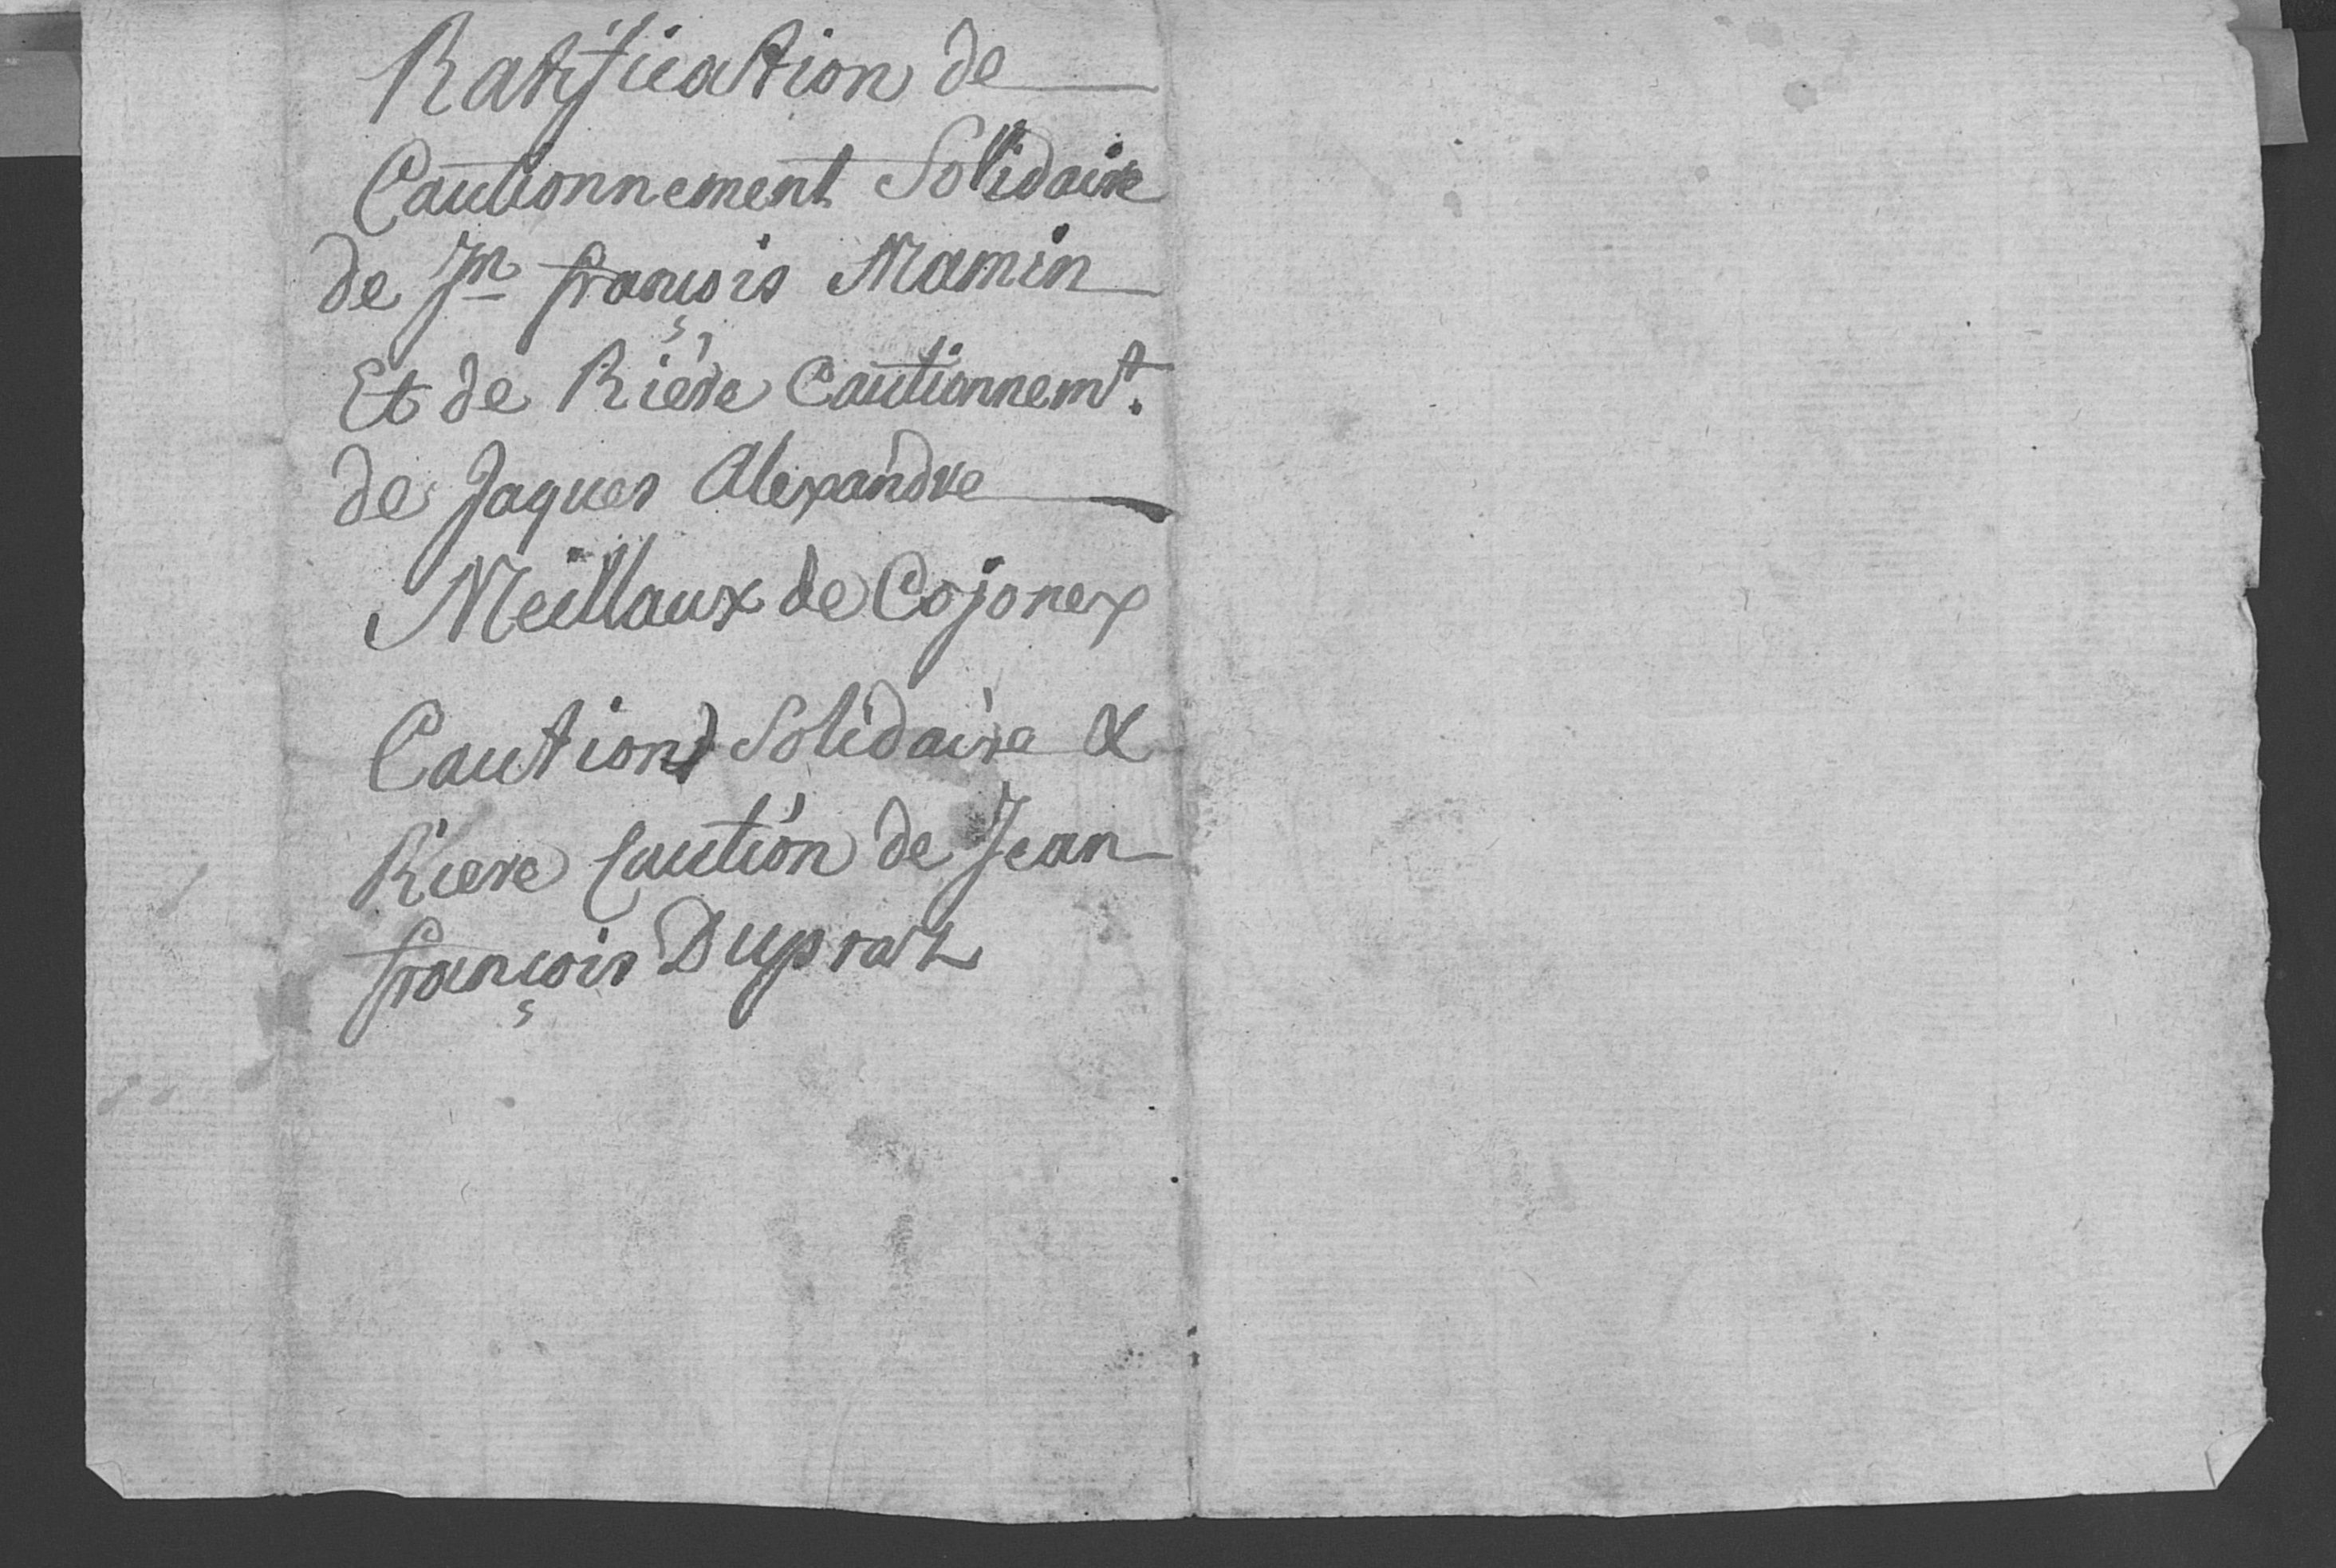 Ratification de
Cautionnement Solidaire
de Jn françois Mamin
Et de Riére Cautionnemt.
de Jaques Alexandre
Meillaux de Cojonex
Caution Solidaire &
Riere Caution de Jean
françois Duprat